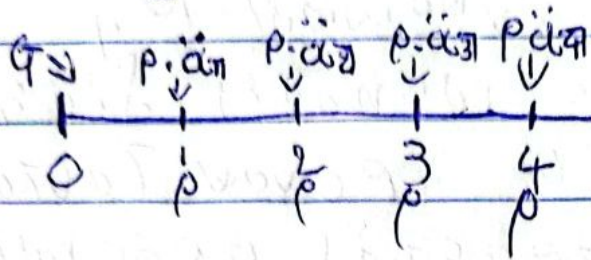 G P.ä1⌉ P.ä2⌉ P.ä3⌉ P.ä4⌉
0 1 2 3 4
P P P P